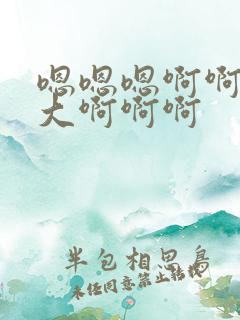 嗯嗯嗯啊啊
大啊啊啊
半包相思鸟
未经同意禁止转载